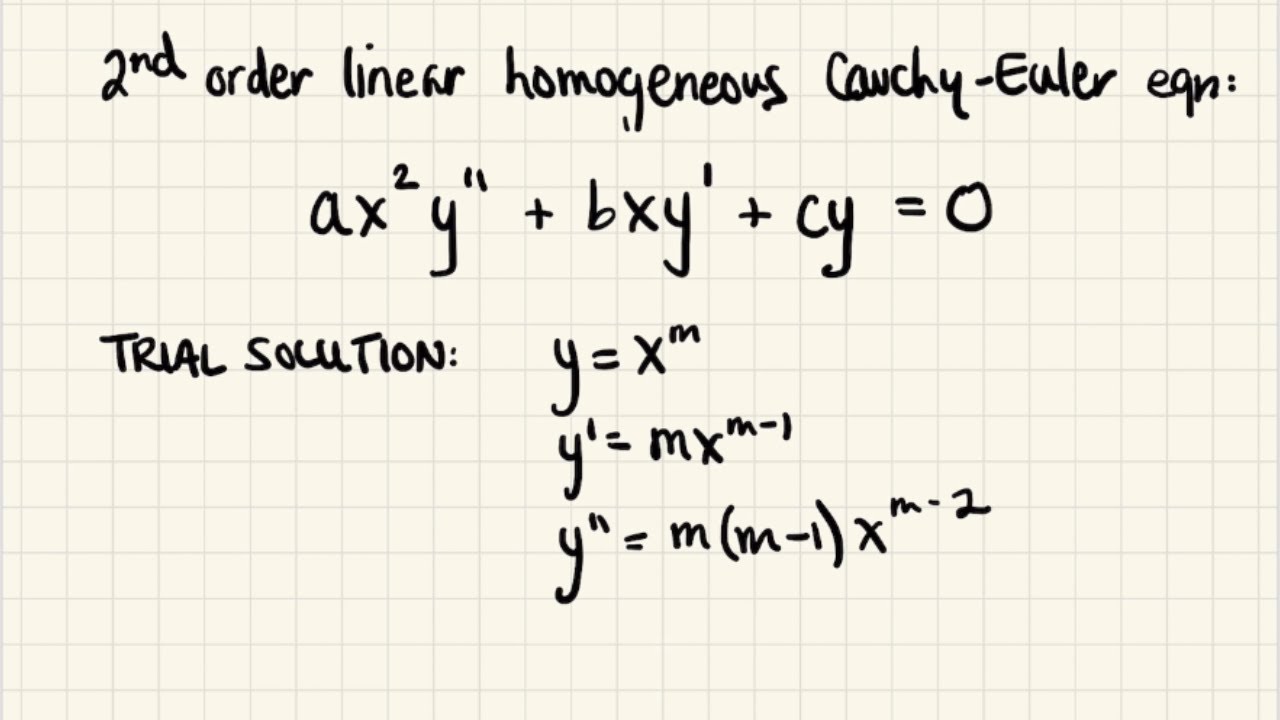 2nd order linear homogeneous Cauchy-Euler eqn:
ax² y'' + bxy' + cy = 0
TRIAL SOLUTION: y = x^m
y' = mx^{m-1}
y'' = m(m-1)x^{m-2}